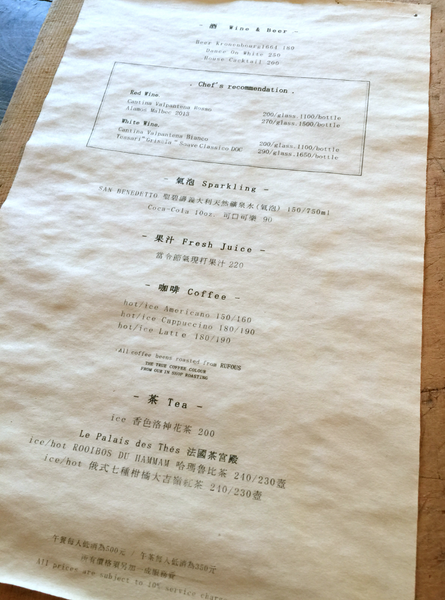 - 酒 Wine & Beer -
Beer Kronenbourg1664 180
Dance On White 250
House Cocktail 200
. Chef's recommendation .
Red Wine
Cantina Valpantena Rosso 200/glass.1100/bottle
Alamos Malbec 2013 270/glass.1500/bottle
White Wine
Cantina Valpantena Bianco 200/glass.1100/bottle
Tessari"Grisela" Soave Classico DOC 290/glass.1650/bottle
- 氣泡 Sparkling -
SAN BENEDETTO 聖碧濤義大利天然礦泉水(氣泡) 150/750ml
Coca-Cola 10oz. 可口可樂 90
- 果汁 Fresh Juice -
當令節氣現打果汁 220
- 咖啡 Coffee -
hot/ice Americano 150/160
hot/ice Cappuccino 180/190
hot/ice Latte 180/190
All coffee beans roasted from RUFOUS
THE TRUE COFFEE COLOUR
FROM OUR IN SHOP ROASTING
- 茶 Tea -
ice 香色洛神花茶 200
Le Palais des Thés 法國茶宮殿
ice/hot ROOIBOS DU HAMMAM 哈瑪魯比茶 240/230壺
ice/hot 俄式七種柑橘大吉嶺紅茶 240/230壺
午餐每人低消為500元 / 午茶每人低消為350元
所有價格需另加一成服務費
All prices are subject to 10% service charge